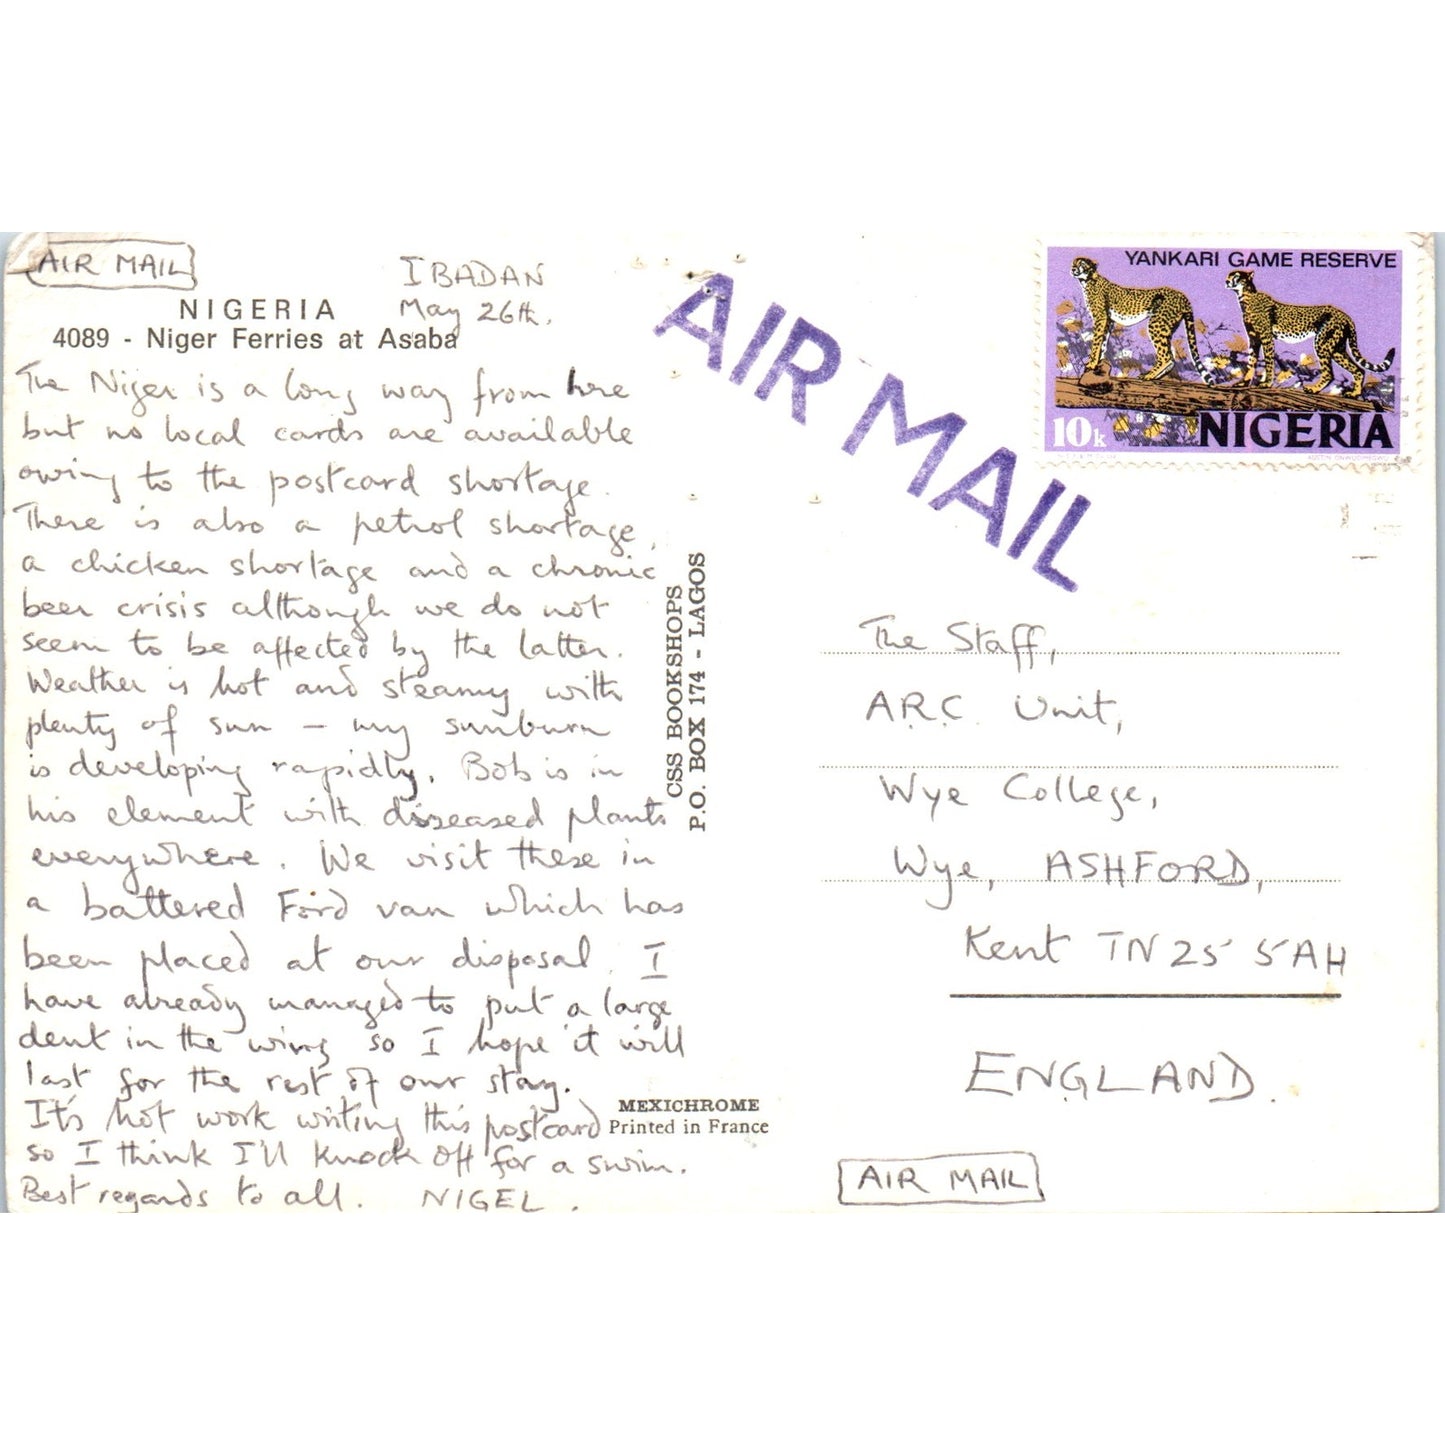 AIR MAIL
IBADAN
May 26th.
NIGERIA
4089 - Niger Ferries at Asaba
The Niger is a long way from here
but no local cards are available
owing to the postcard shortage.
There is also a petrol shortage,
a chicken shortage and a chronic
beer crisis although we do not
seem to be affected by the latter.
Weather is hot and steamy with
plenty of sun – my sunburn
is developing rapidly. Bob is in
his element with diseased plants
everywhere. We visit these in
a battered Ford van which has
been placed at our disposal. I
have already managed to put a large
dent in the wing so I hope it will
last for the rest of our stay.
It's hot work writing this postcard
so I think I'll knock off for a swim.
Best regards to all. NIGEL.
CSS BOOKSHOPS
P.O. BOX 174 - LAGOS
MEXICHROME
Printed in France
AIR MAIL
YANKARI GAME RESERVE
10k NIGERIA
The Staff,
A.R.C. Unit,
Wye College,
Wye, ASHFORD,
Kent TN25 5AH
ENGLAND.
AIR MAIL